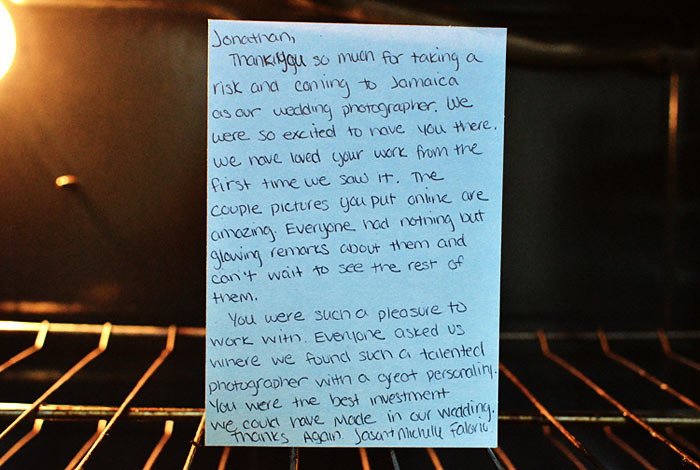 Jonathan,
Thank you so much for taking a
risk and coming to Jamaica
as our wedding photographer. We
were so excited to have you there.
We have loved your work from the
first time we saw it. The
couple pictures you put online are
amazing. Everyone had nothing but
glowing remarks about them and
can't wait to see the rest of
them.
You were such a pleasure to
work with. Everyone asked us
where we found such a talented
photographer with a great personality.
You were the best investment
we could have made in our wedding.
Thanks Again. Jason + Michelle